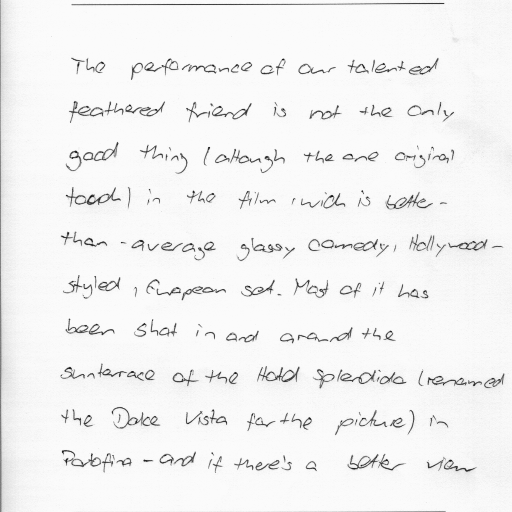 The performance of our talented
feathered friend is not the only
good thing (although the one original
touch) in the film, wich is better-
than-average glossy comedy, Hollywood-
styled, European set. Most of it has
been shot in and around the
sunterrace of the Hotel Splendido (renamed
the Dolce Vista for the picture) in
Portofino - and if there's a better view